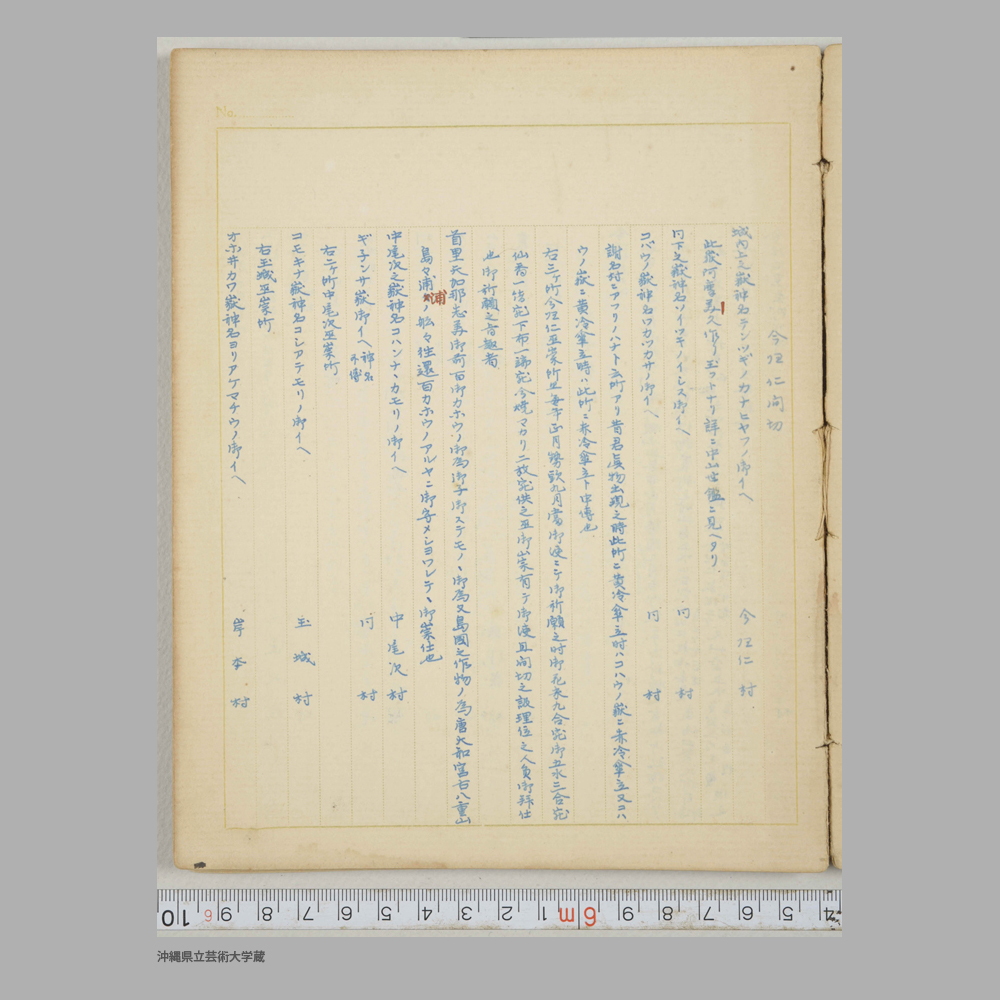 今帰仁間切
城内上之嶽神名テンツギノカナヒヤブノ御イベ 今帰仁村
此嶽阿摩美久作リ玉フトナリ詳ニ中山世鑑ニ見ヘタリ
同下之嶽神名ソイツギノイシズ御イベ 同村
コバウノ嶽神名ワカツカサノ御イベ 同村
謝名村ニアフリノハナト云所アリ昔君真物出現之時此所ニ黄冷傘立時ハコハウノ嶽ニ赤冷傘立又コハ
ウノ嶽ニ黄冷傘立時ハ此所ニ赤冷傘立ト申傳也
右三ヶ所今帰仁巫崇所且毎年正月 九月當御使ニテ御祈願之時御花米九合宛御五水三合宛
仙香一結宛下布一端宛今焼マカリ二敷宛供之巫御崇有テ御使且間切之 理位之人負御拜仕
也御祈願之旨趣者
首里天加那志美御前百御カホウノ御為御子御ステモノ、御為又島國之作物ノ為唐大和宮古八重山
島々浦浦ノ船々往還百カホウノアルヤニ御守メシヨワレテ、御崇仕也
中尾次之嶽神名コハンナ、カモリノ御イベ 中尾次村
ギネンサ嶽御イベ神名不傳 同村
右二ヶ所中尾次巫崇所
コモキナ嶽神名コシアテモリノ御イベ 玉城村
右玉城巫崇所
オホ井カワ嶽神名ヨリアゲマチウノ御イベ 岸本村
No.
10 6 9 8 7 6 5 4 3 2 1 6m 9 8 7 6 5 4
沖縄県立芸術大学蔵